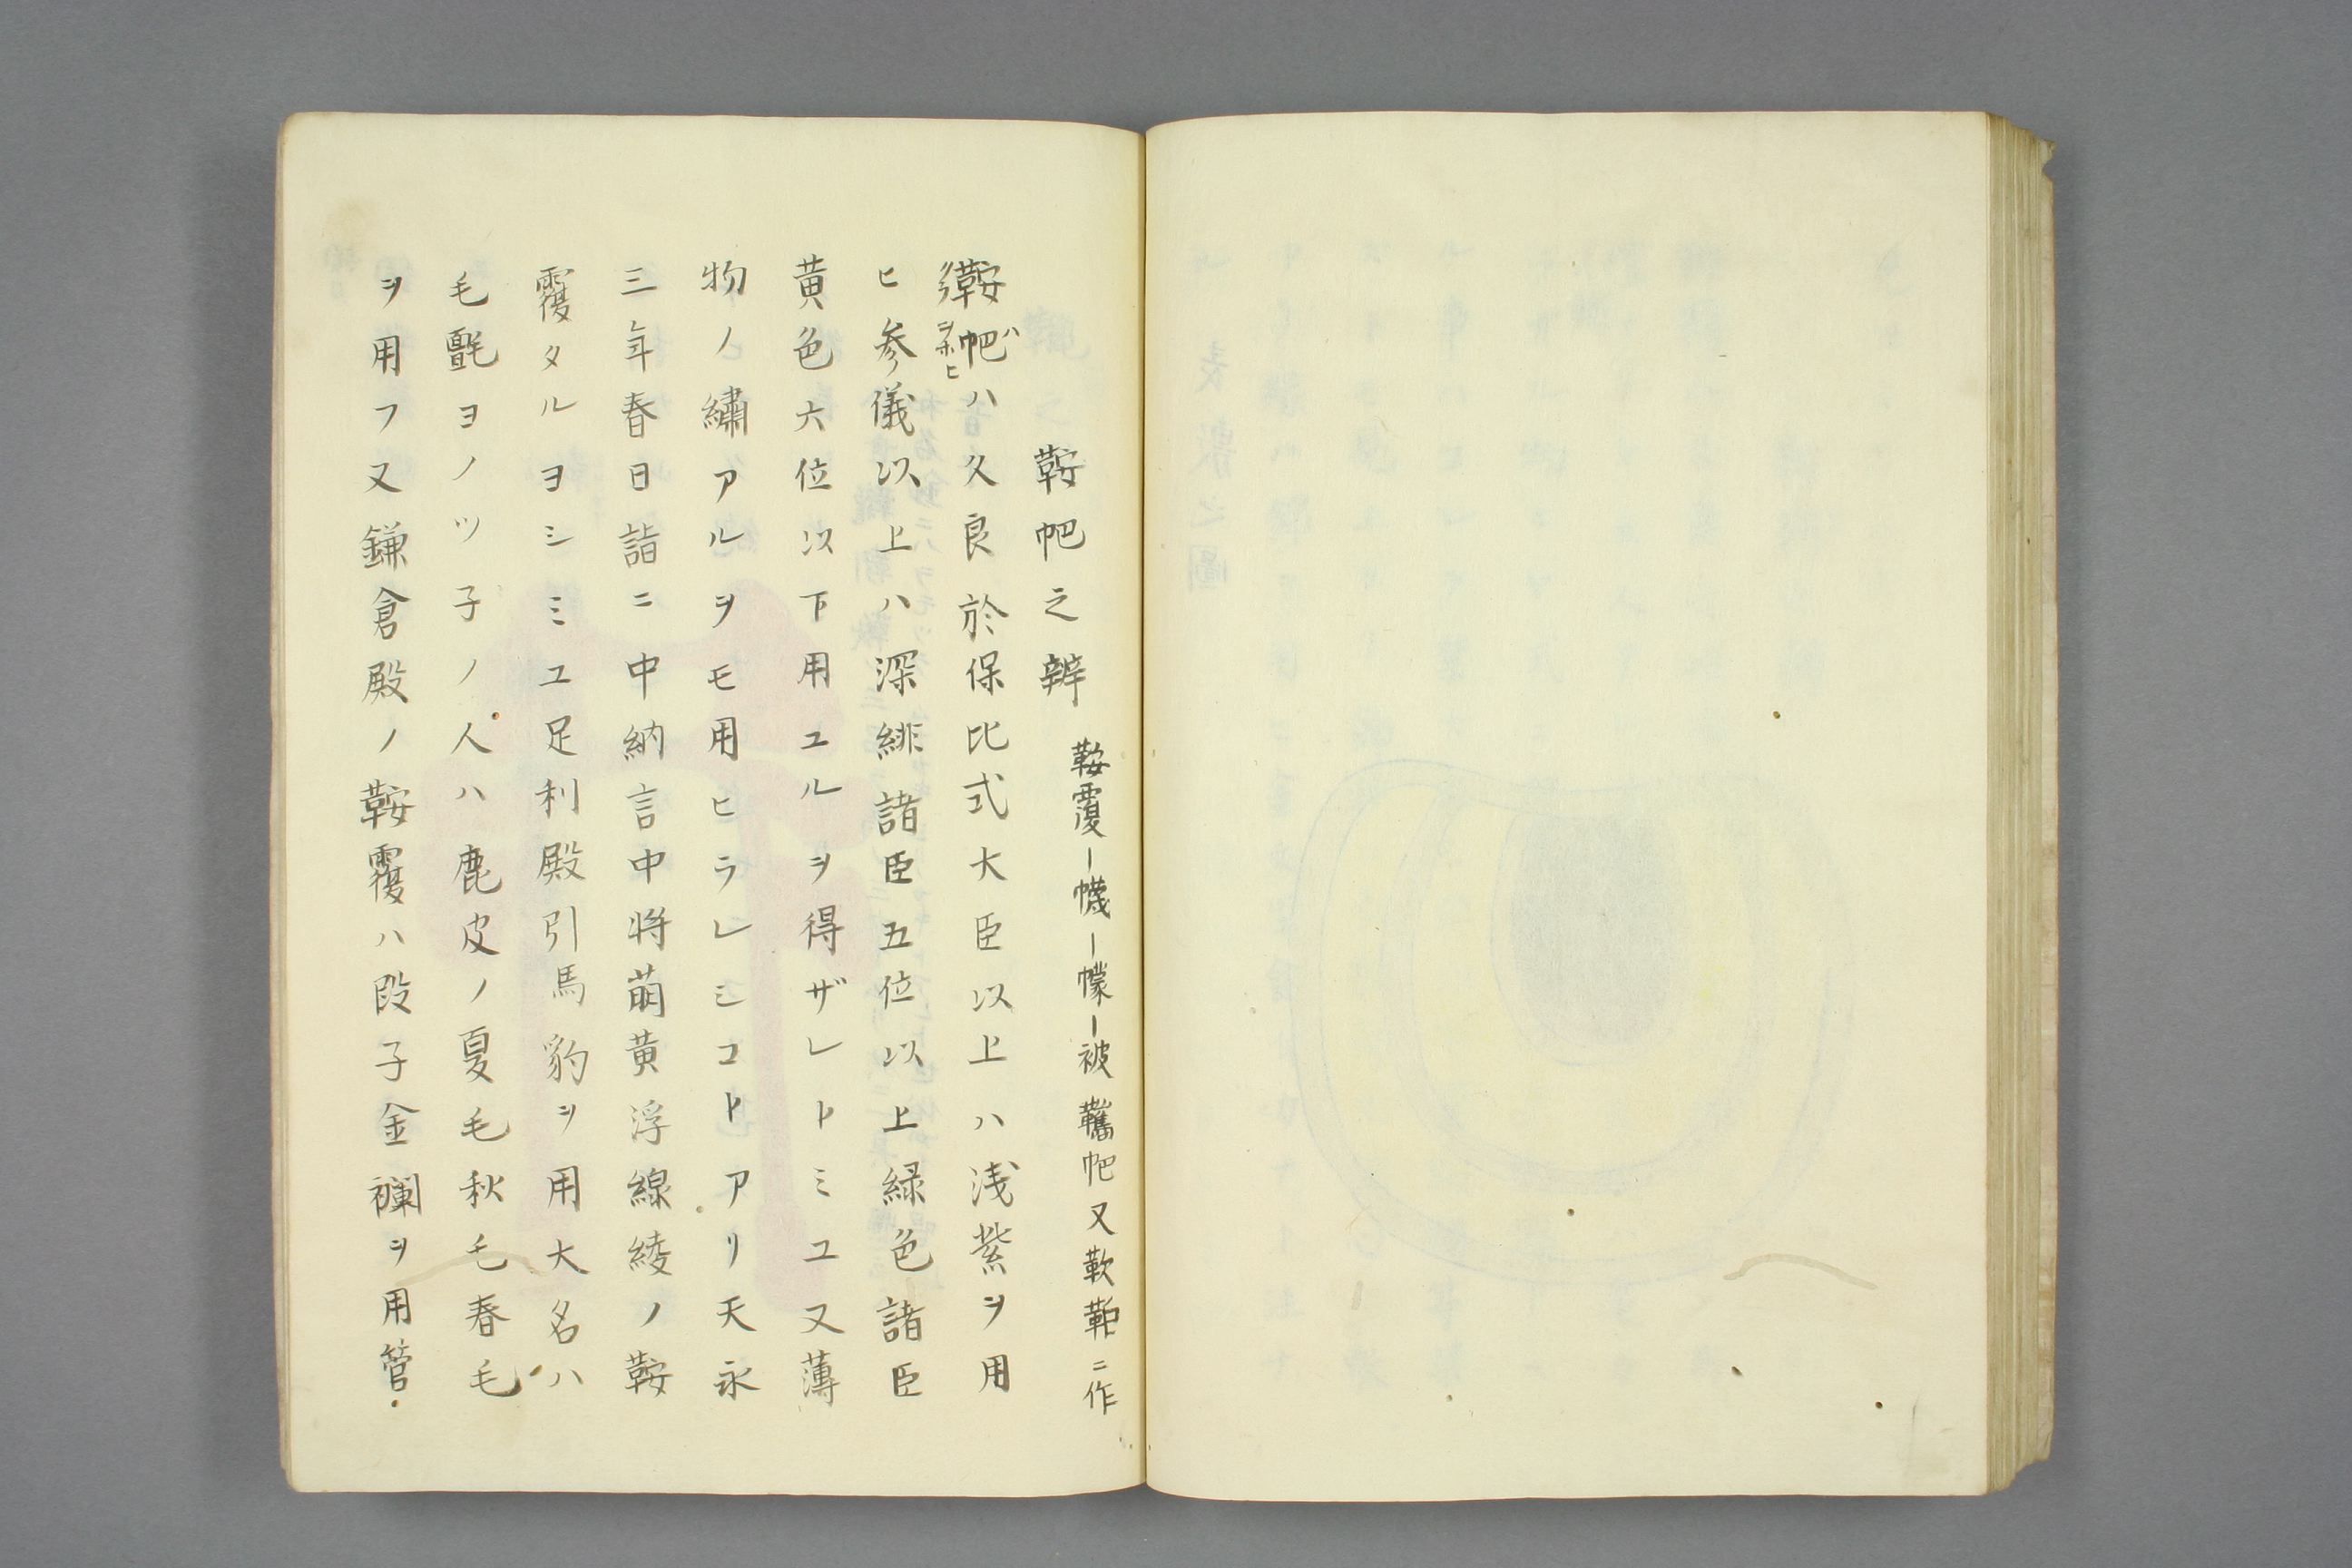 鞍帊之辨 鞍覆―幭―幪―被鞴帊又鞍䩯ニ作
鞍帊ハ久良於保比式大臣以上ハ浅紫ヲ用
ヒ参儀以上ハ深緋諸臣五位以上緑色諸臣
黄色六位以下用ユルヲ得ザレトミユ又薄
物ノ繡アルヲモ用ヒラレシコトアリ天永
三年春日詣ニ中納言中将萠黄浮線綾ノ鞍
覆タルヨシミユ足利殿引馬豹ヲ用大名ハ
毛氈ヨノツ子ノ人ハ鹿皮ノ夏毛秋毛春毛
ヲ用フ又鎌倉殿ノ鞍覆ハ段子金襴ヲ用管